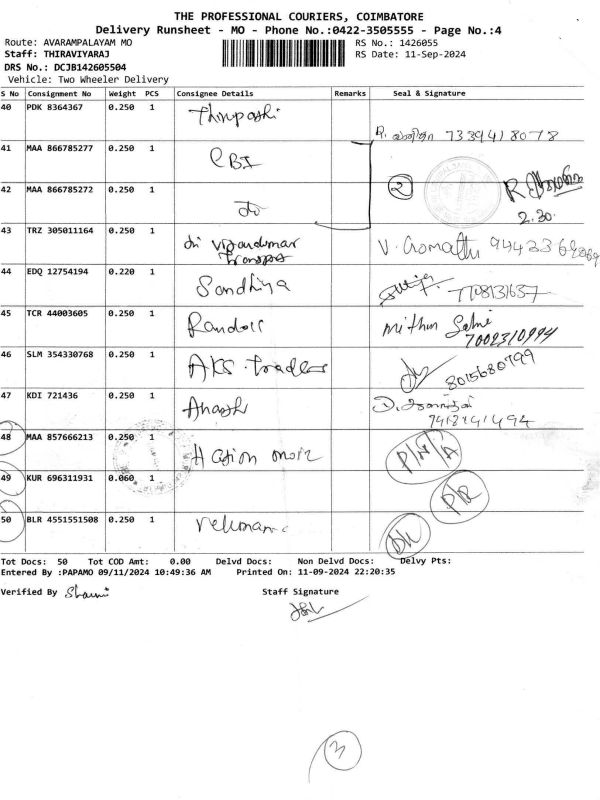 THE PROFESSIONAL COURIERS, COIMBATORE
Delivery Runsheet - MO - Phone No.:0422-3505555 - Page No.:4
Route: AVARAMPALAYAM MO
RS No.: 1426055
Staff: THIRAVIYARAJ
RS Date: 11-Sep-2024
DRS No.: DCJB142605504
Vehicle: Two Wheeler Delivery
S No Consignment No Weight PCS Consignee Details Remarks Seal & Signature
40 PDK 8364367 0.250 1
7339418078
41 MAA 866785277 0.250 1 CBI
2
42 MAA 866785272 0.250 1 do
2.30
43 TRZ 305011164 0.250 1 Sri
V. Gomathi
44 EDQ 12754194 0.220 1 Sandhiya
7708131637
45 TCR 44003605 0.250 1
Mithun
7002310994
46 SLM 354330768 0.250 1 AKS. Traders
8015680799
47 KDI 721436 0.250 1
48 MAA 857666213 0.250 1
P/N/A
49 KUR 696311931 0.060 1
P/R
50 BLR 4551551508 0.250 1
Tot Docs: 50 Tot COD Amt: 0.00 Delvd Docs: Non Delvd Docs: Delvy Pts:
Entered By :PAPAMO 09/11/2024 10:49:36 AM Printed On: 11-09-2024 22:20:35
Verified By
Staff Signature
3